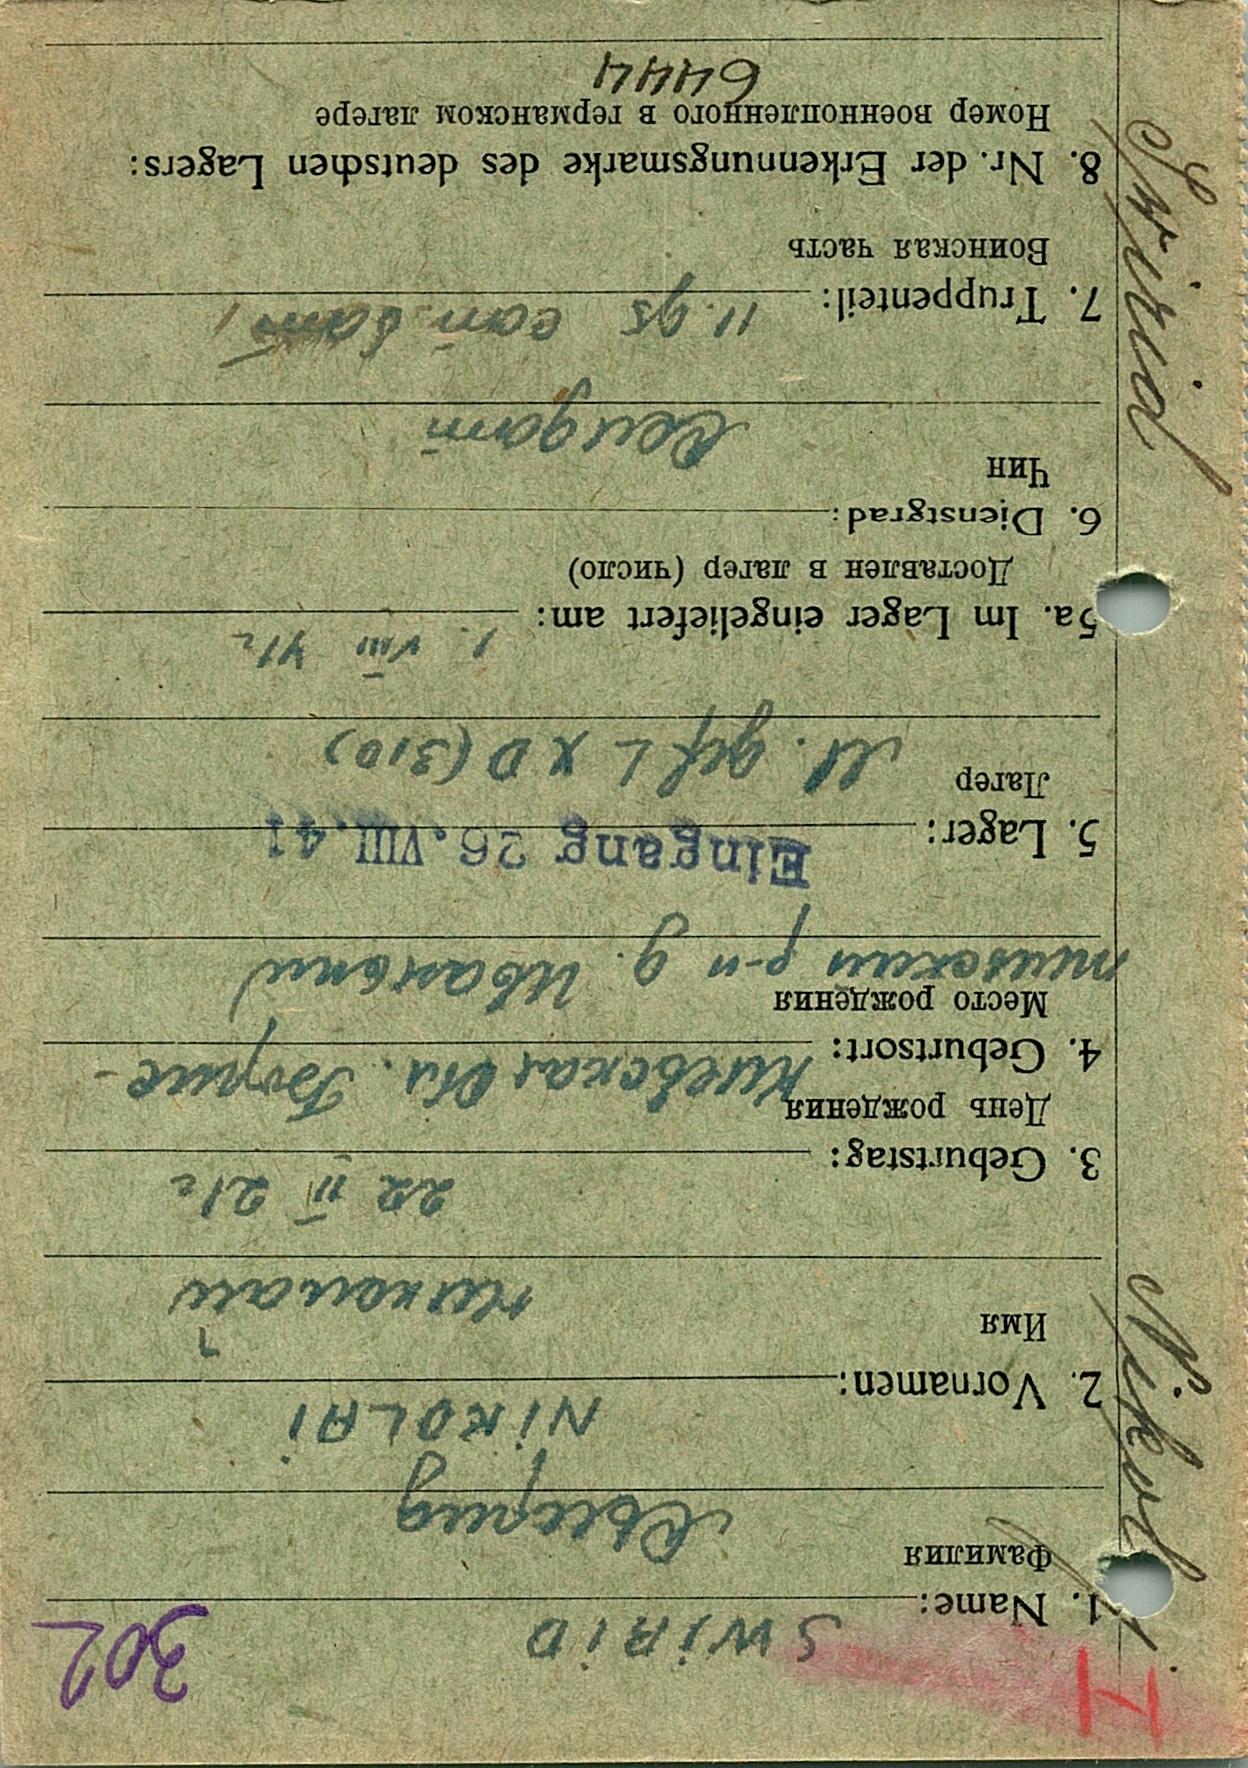 302
1. Name: SWIRID
Фамилия
Свирид
NIKOLAI
2. Vornamen:
Имя
Николай
3. Geburtstag: 22 II 21г
День рождения
4. Geburtsort: Киевская Обл. Борис-
Место рождения
польский р-н д. Иваньки
Eingang 26. VIII. 41
5. Lager:
Лагер
M. gef L X D (310)
5a. Im Lager eingeliefert am: 1. VIII 41г
Доставлен в лагер (число)
6. Dienstgrad:
Чин
Солдат
7. Truppenteil: сап. бат
Воинская часть
8. Nr. der Erkennungsmarke des deutschen Lagers:
Номер военнопленного в германском лагере
6444
Swirid